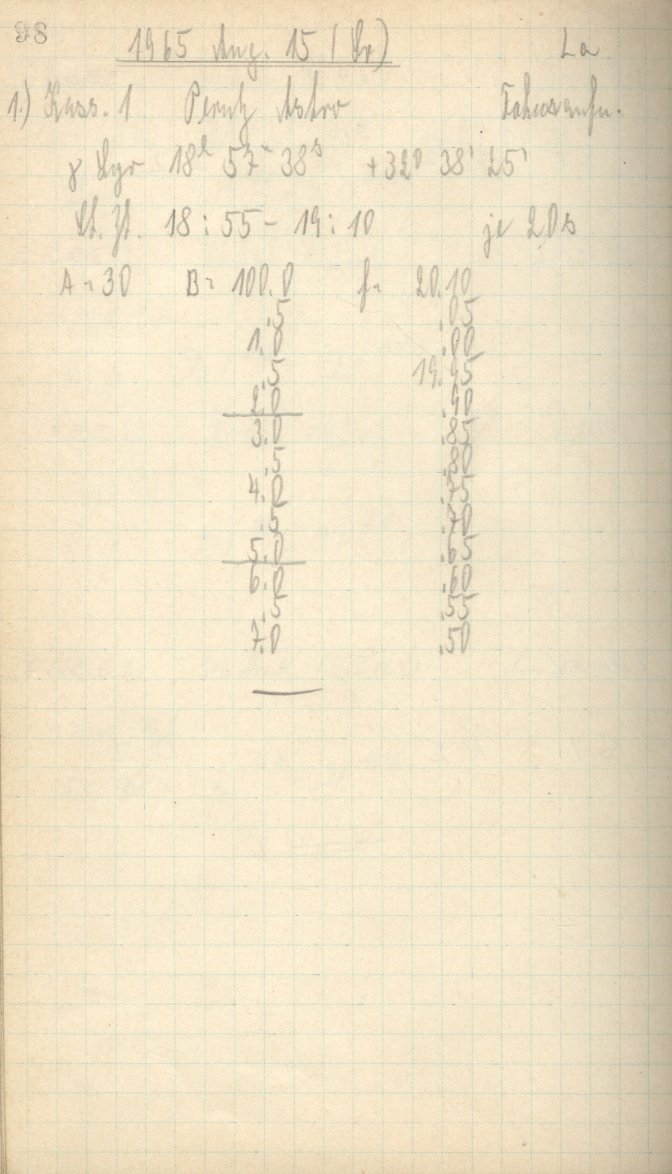 98
1965 Aug. 15 (So) La
1.) Kass. 1 Perutz Astro Fokusaufn.
γ Lyr 18ʰ 57ᵐ 38ˢ +32⁰ 38' 25'
St. Zt. 18:55 - 19:10 je 20s
A = 30 B = 100.0 f = 20.10
.5 .05
1.0 .00
.5 19.95
2.0 .90
3.0 .85
.5 .80
4.0 .75
.5 .70
5.0 .65
6.0 .60
.5 .55
7.0 .50